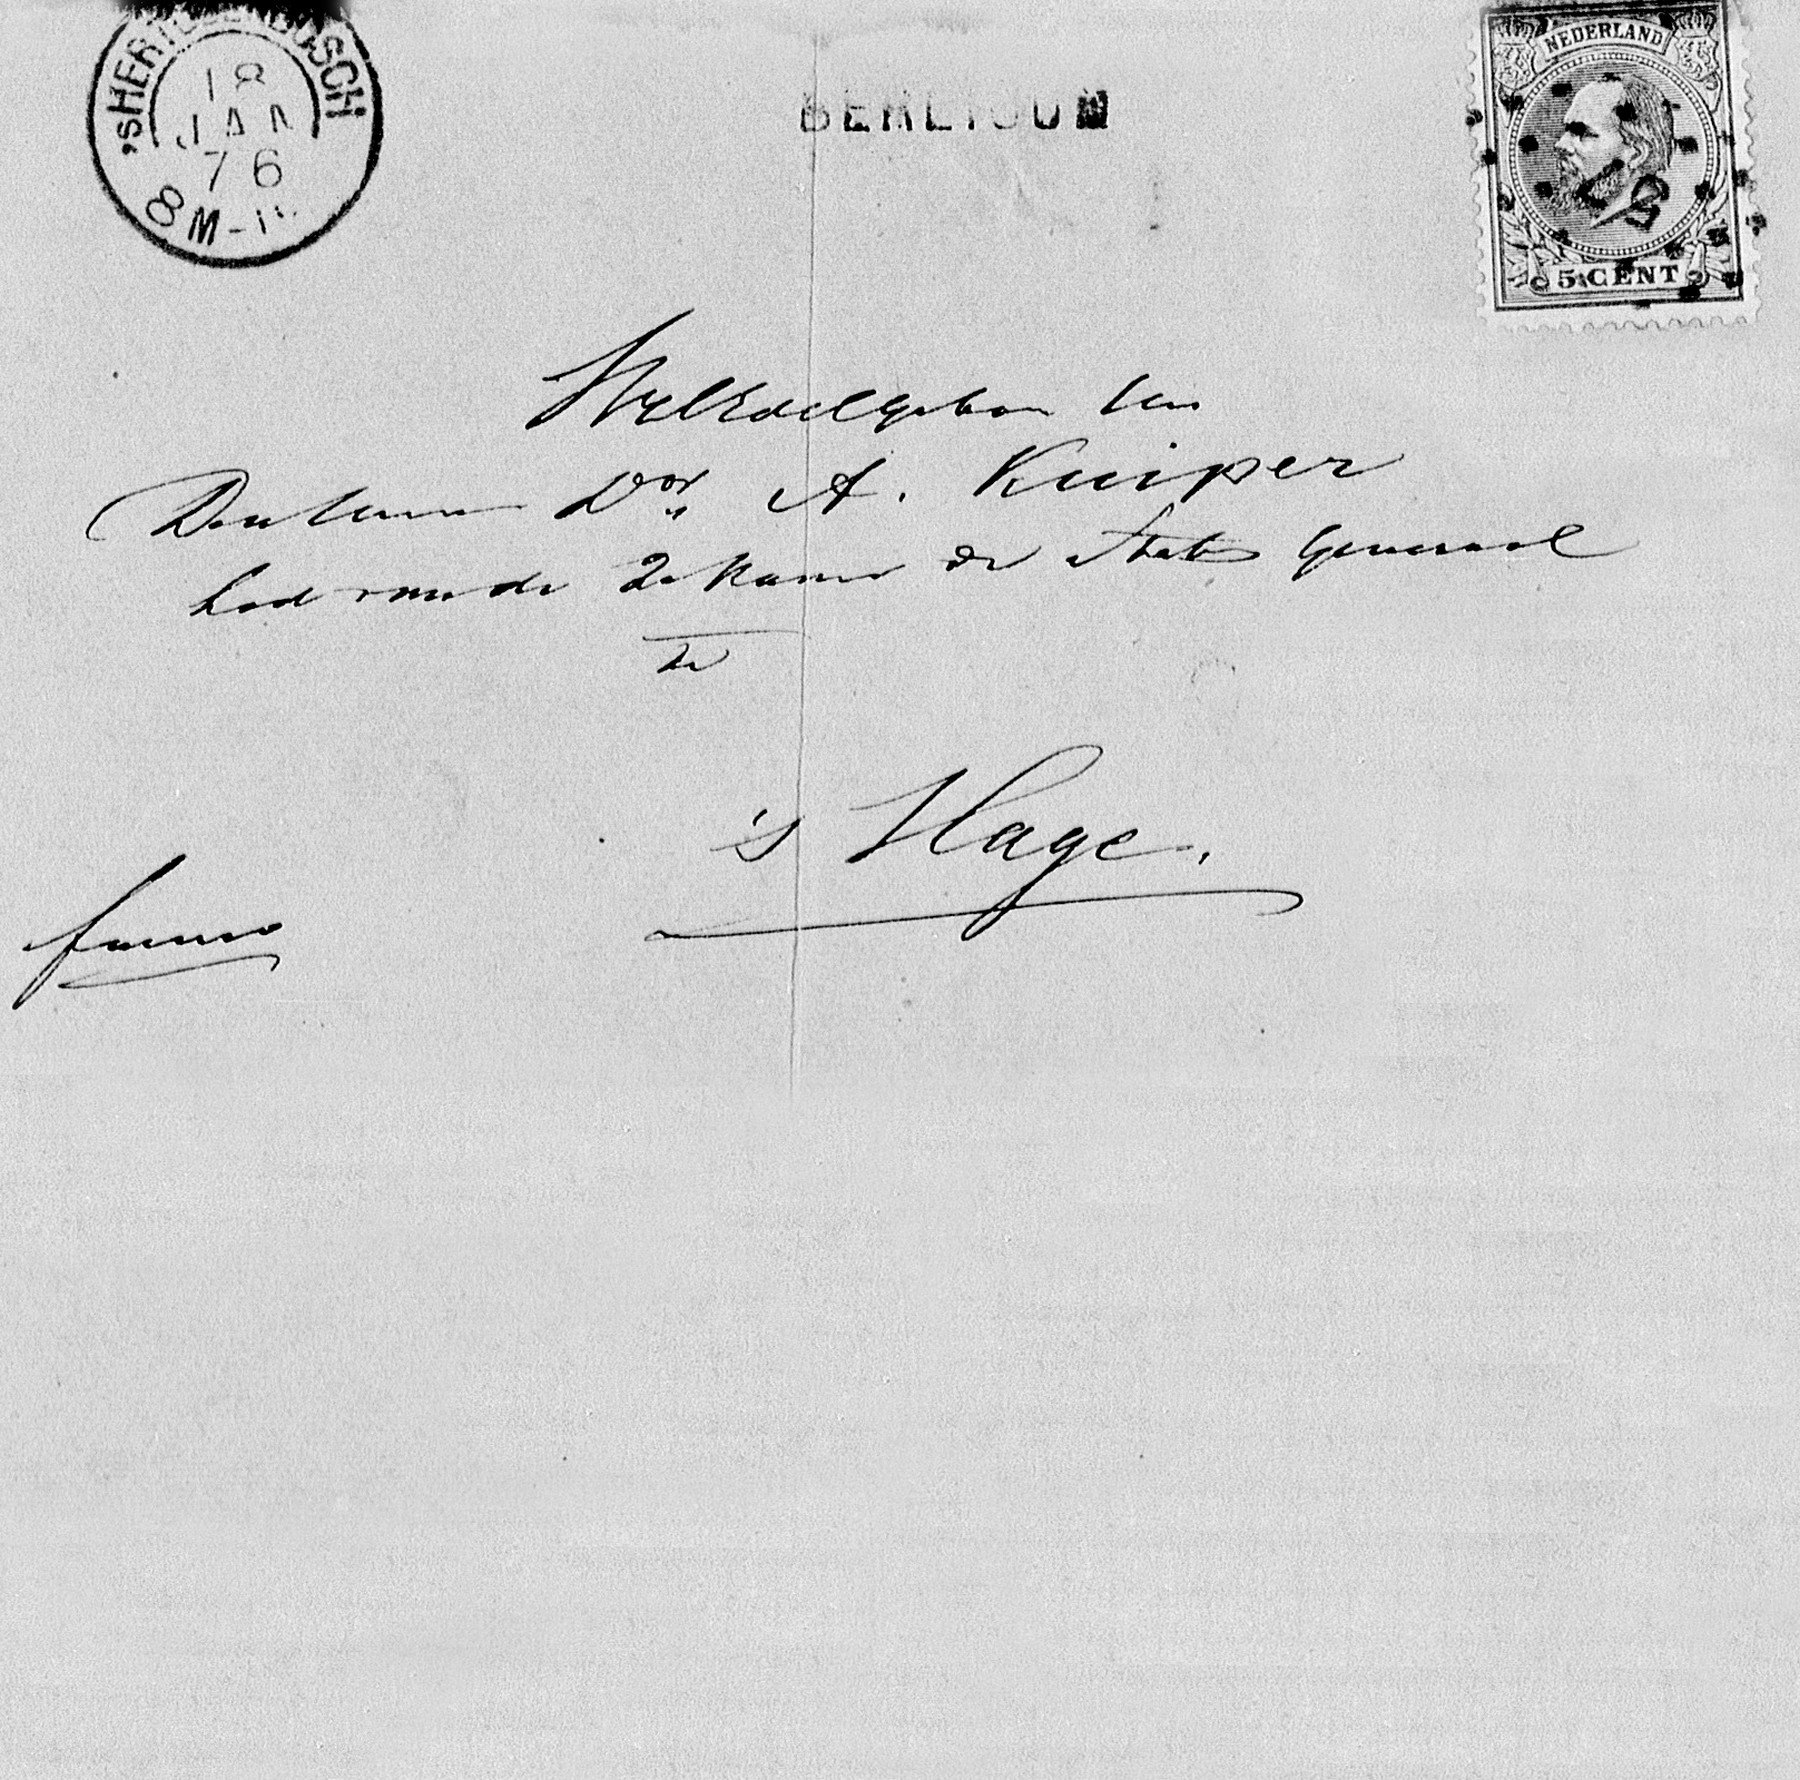 'sHERTOGENBOSCH
18
JAN
76
8 M-
BERLICUM
NEDERLAND
5 CENT
WelEdelgeboren Heer
Den Heer Dor A. Kuiper
Lid van de 2e Kamer der Staten Generaal
Te
's Hage.
franco